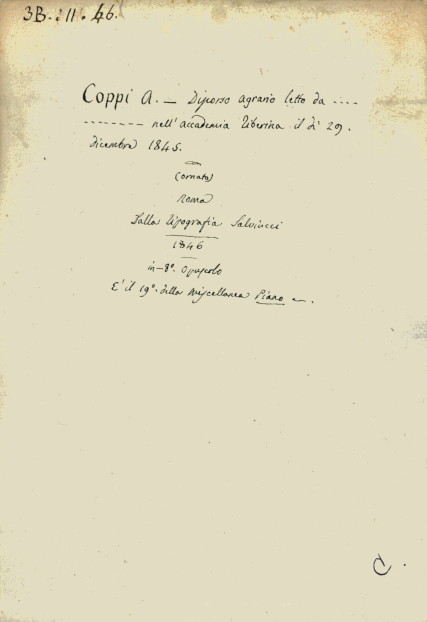 3B. 11. 46.
Coppi A. — Discorso agrario letto da ----
-------- nell'accademia tiberina il dì 29.
dicembre 1845.
(ornato)
Roma
Dalla tipografia Salviucci
1846
in-8°. Opuscolo
È il 19°. della Miscellanea Piano
C.